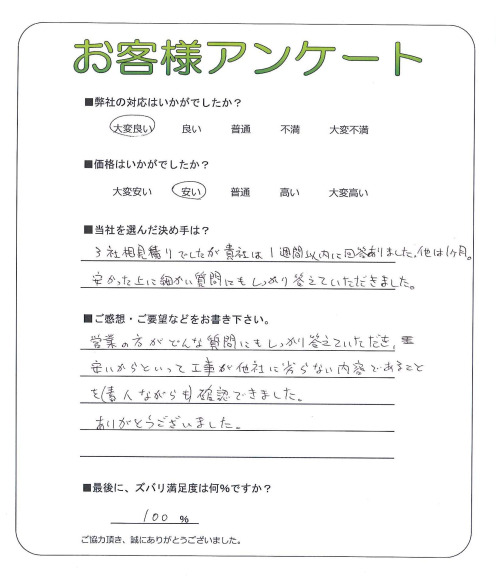 お客様アンケート
■弊社の対応はいかがでしたか？
大変良い 良い 普通 不満 大変不満
■価格はいかがでしたか？
大変安い 安い 普通 高い 大変高い
■当社を選んだ決め手は？
3社相見積りでしたが貴社は1週間以内に回答ありました。他は1ヶ月。
安かった上に細かい質問にもしっかり答えていただきました。
■ご感想・ご要望などをお書き下さい。
営業の方がどんな質問にもしっかり答えていただき、
安いからといって工事が他社に劣らない内容であること
を(素人ながらも)確認できました。
ありがとうございました。
■最後に、ズバリ満足度は何％ですか？
100 ％
ご協力頂き、誠にありがとうございました。